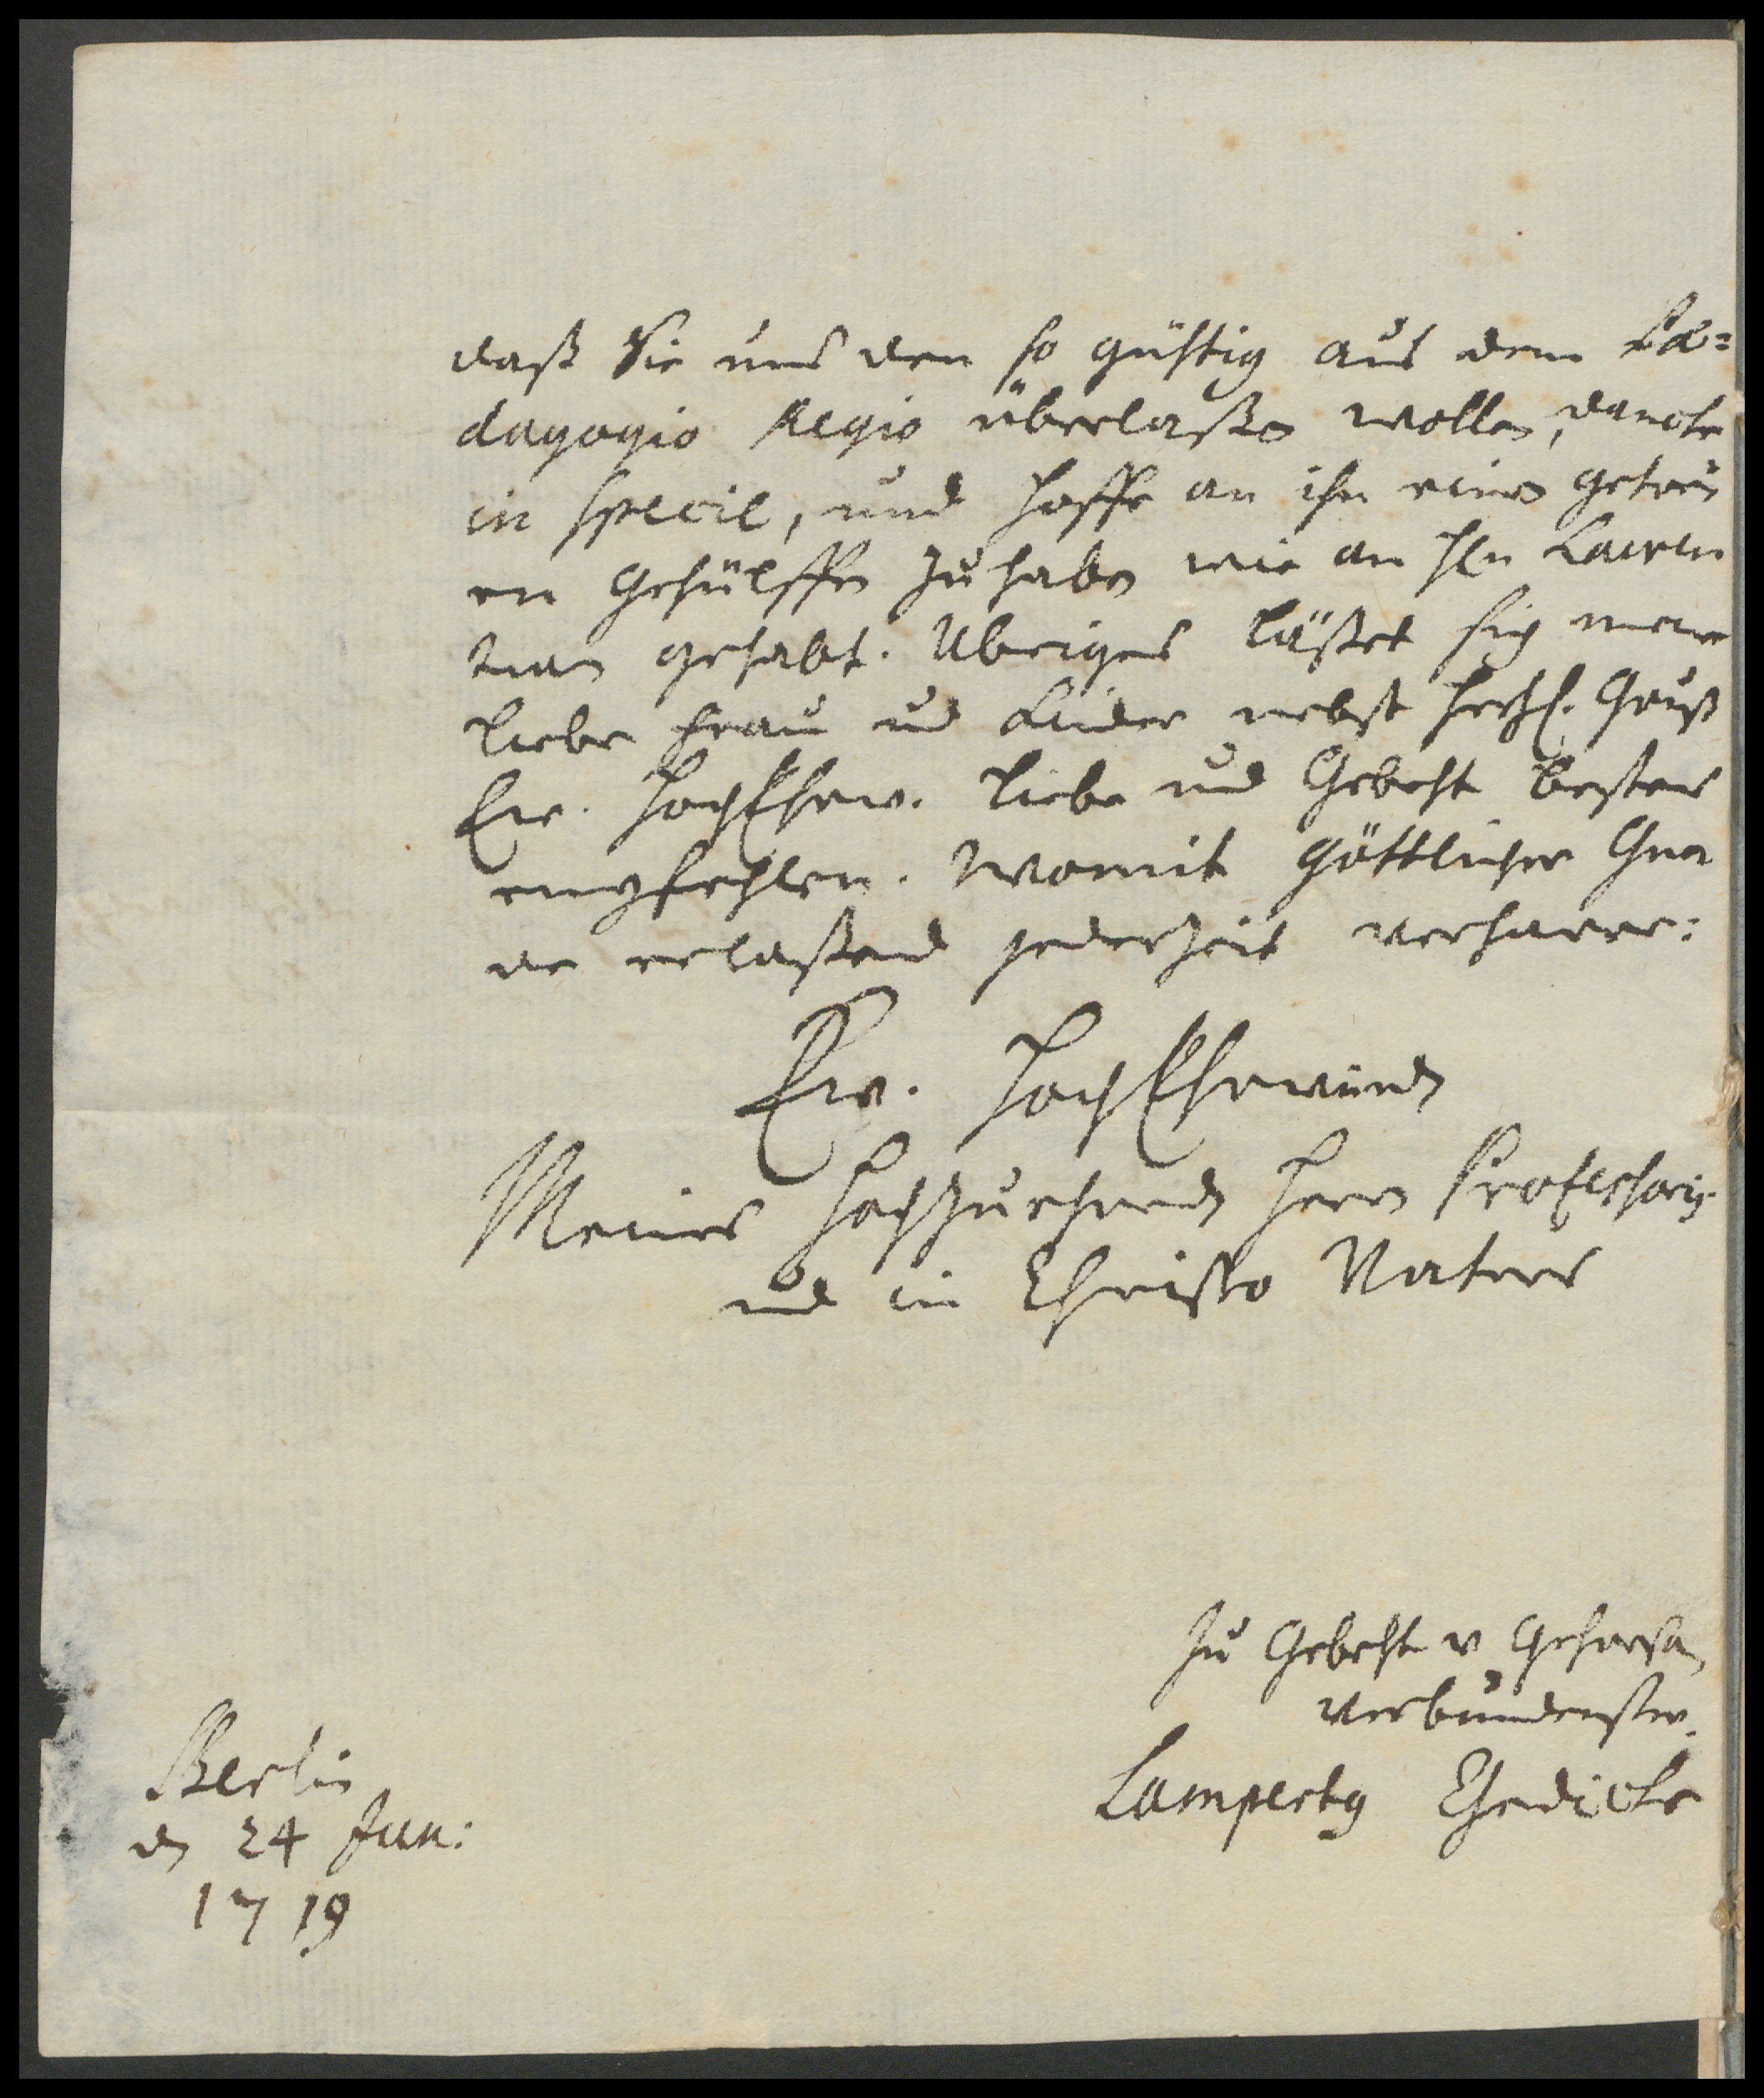 daß Sie uns den so gühtig aus dem Pæ=
dagogio Regio überlaßen wollen, dancke
in specie, und hoffe an ihn einen getreu
en Gehülffen zu haben wie an H̃n
gehabt. Ubrigens läßet sich meine
liebe Frau und Kinder nebst hertzl. Gruß
Ew. HochEhrw. Liebe und Gebeht bestens
empfehlen. Womit Göttlicher Gna
de erlaßend jederzeit verharre:
Ew. HochEhrwürden
Meines Hochzuehrenden Herrn Professoris
und in Christo Vaters
Zu Gebeht u Gehorsam
verbundenster.
Lampertg Gedicke
Berlin
den 24 Jun:
1719